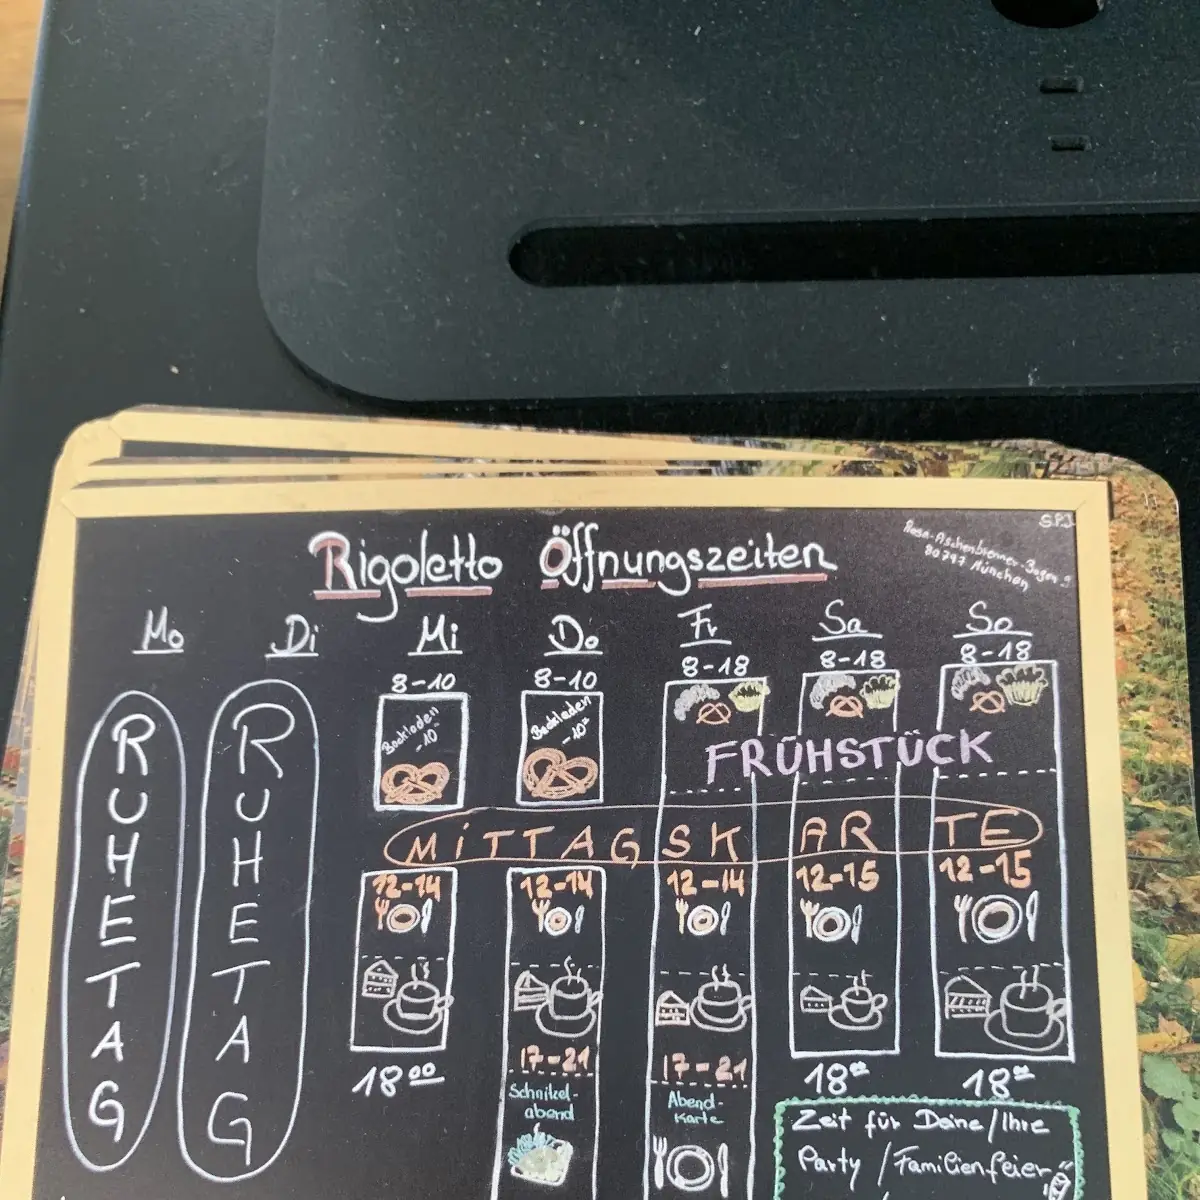 Rigoletto Öffnungszeiten
SPJ
Rosa-Aschenbrenner-Bogen 9
80797 München
Mo Di Mi Do Fr Sa So
8-10 8-10 8-18 8-18 8-18
RUHETAG RUHETAG
Backladen
-10
Backladen
-10
FRÜHSTÜCK
MiTTAGSKARTE
12-14 12-14 12-14 12-15 12-15
17-21 17-21
18⁰⁰ 18 18
Schnitzel-
abend
Abend-
karte
Zeit für Deine/Ihre
Party / Familienfeier